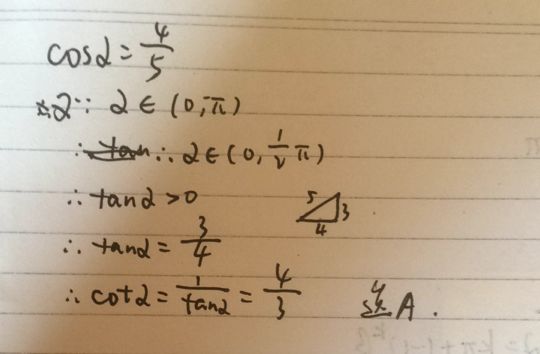 cosα=4/5
∵ α∈(0,π)
∴ α∈(0,1/2π)
∴ tanα>0
5 3 4
∴ tanα=3/4
∴ cotα=1/tanα=4/3 选A.